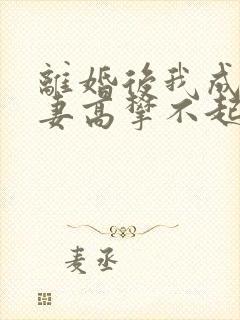 離婚後我成
妻高攀不起
麦丞